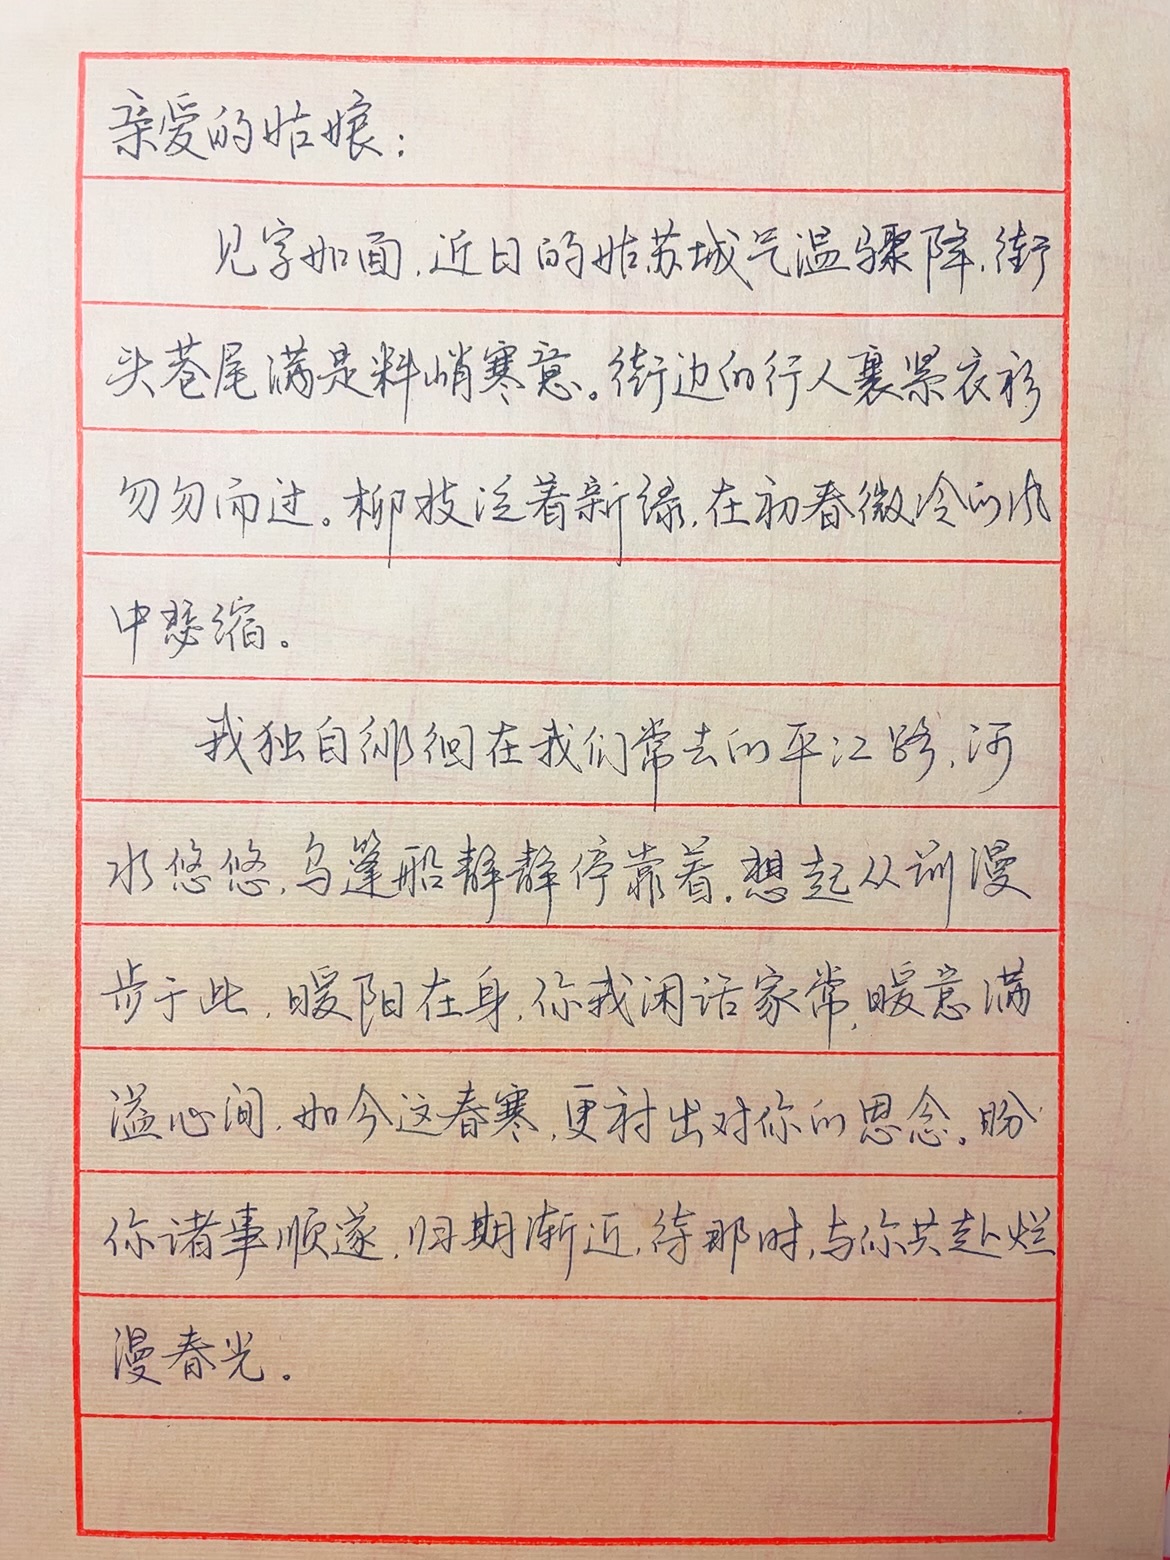 亲爱的姑娘：
见字如面，近日的姑苏城气温骤降，街
头巷尾满是料峭寒意。街边的行人裹紧衣衫
匆匆而过。柳枝泛着新绿，在初春微冷的风
中瑟缩。
我独自徘徊在我们常去的平江路，河
水悠悠，乌篷船静静停靠着。想起从前漫
步于此，暖阳在身，你我闲话家常，暖意满
溢心间，如今这春寒，更衬出对你的思念。盼
你诸事顺遂，归期渐近，待那时，与你共赴烂
漫春光。